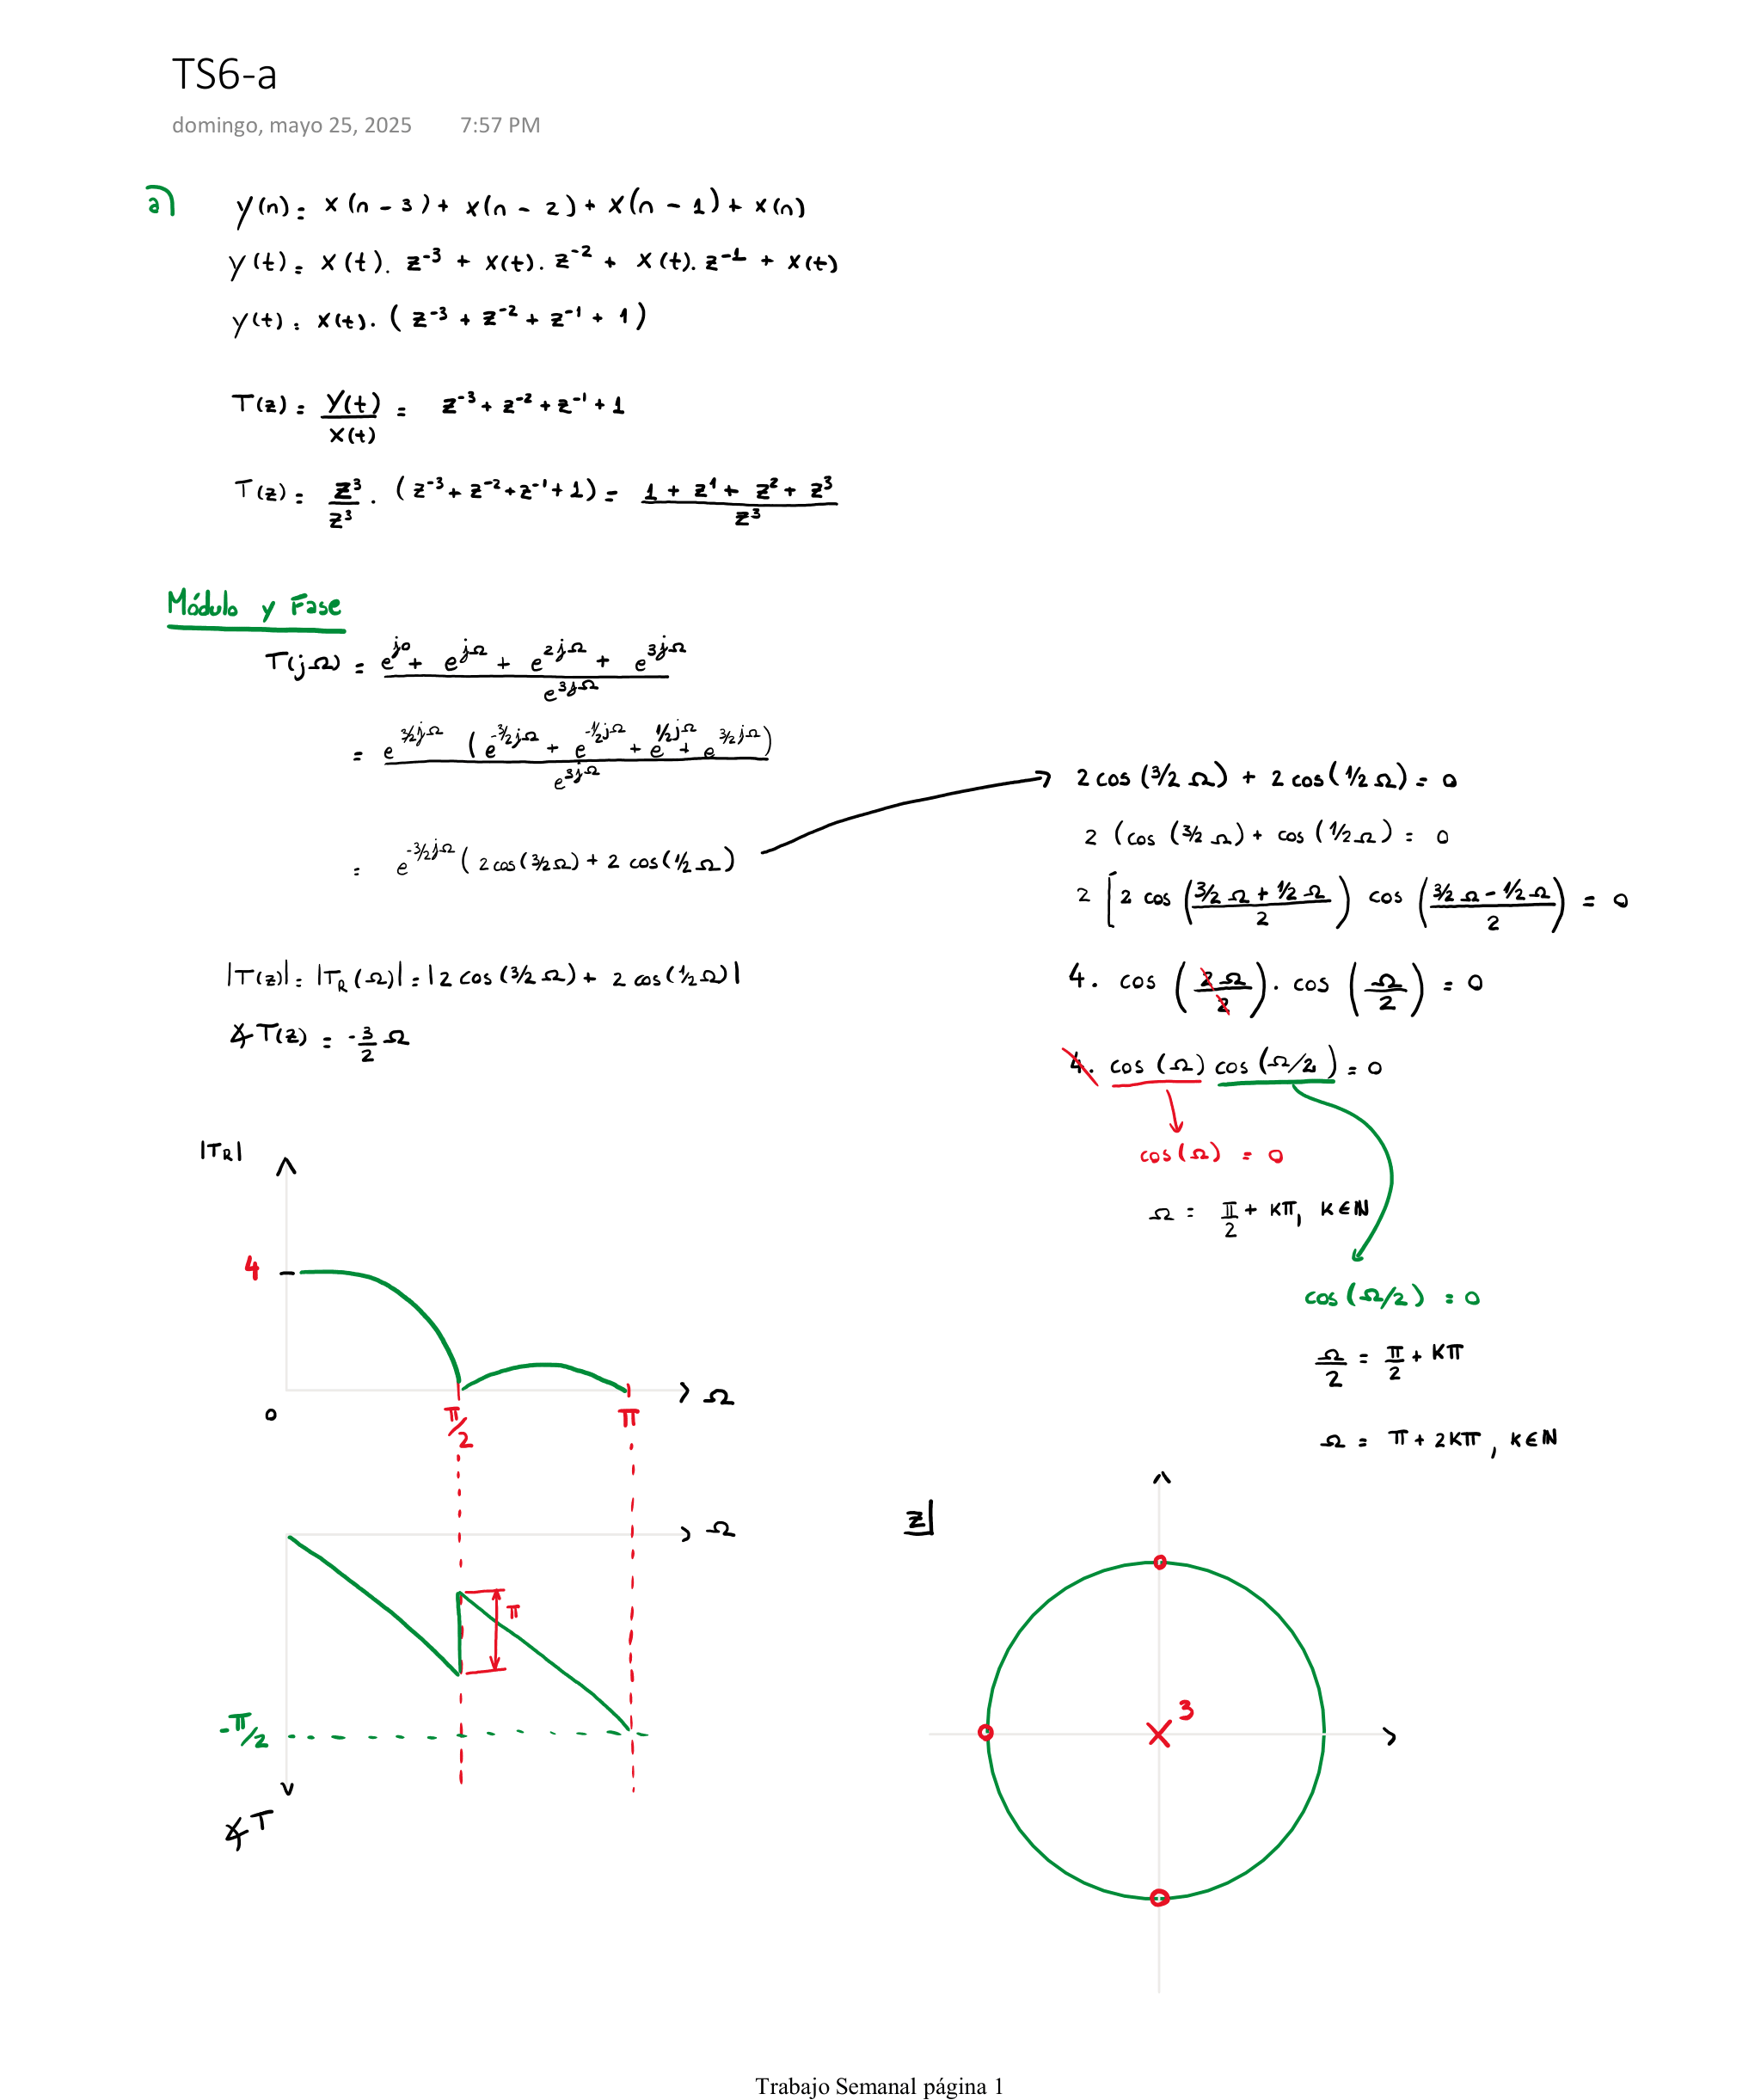 TS6-a
domingo, mayo 25, 2025 7:57 PM
a) y(n) = x(n - 3) + x(n - 2) + x(n - 1) + x(n)
y(t) = x(t). z⁻³ + x(t). z⁻² + x(t). z⁻¹ + x(t)
y(t) = x(t). (z⁻³ + z⁻² + z⁻¹ + 1)
T(z) = Y(t)/X(t) = z⁻³ + z⁻² + z⁻¹ + 1
T(z) = z³/z³ . (z⁻³ + z⁻² + z⁻¹ + 1) = (1 + z¹ + z² + z³)/z³
Módulo y Fase
T(jΩ) = (e^(j0) + e^(jΩ) + e^(2jΩ) + e^(3jΩ))/e^(3jΩ)
= e^(3/2jΩ) (e^(-3/2jΩ) + e^(-1/2jΩ) + e^(1/2jΩ) + e^(3/2jΩ))/e^(3jΩ)
= e^(-3/2jΩ) (2 cos(3/2Ω) + 2 cos(1/2Ω))
|T(z)| = |T_R(Ω)| = |2 cos(3/2Ω) + 2 cos(1/2Ω)|
∡T(z) = -3/2 Ω
2 cos(3/2 Ω) + 2 cos(1/2 Ω) = 0
2 (cos(3/2 Ω) + cos(1/2Ω) = 0
2 [2 cos((3/2 Ω + 1/2 Ω)/2) cos((3/2 Ω - 1/2 Ω)/2) = 0
4. cos(2Ω/2). cos(Ω/2) = 0
4. cos(Ω) cos(Ω/2) = 0
cos(Ω) = 0
Ω = π/2 + Kπ, K∈ℕ
cos(Ω/2) = 0
Ω/2 = π/2 + Kπ
Ω = π + 2Kπ, K∈ℕ
|T_R|
4
0
π/2
π
Ω
Ω
π
-π/2
∡T
z
3
Trabajo Semanal página 1